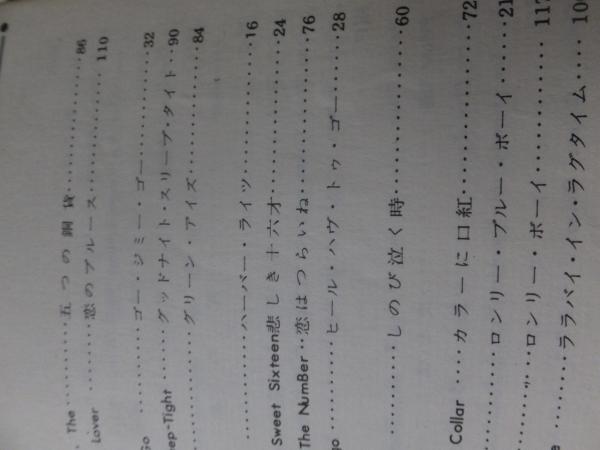 The ………五つの銅貨………86
Lover ………恋のブルース………110
Go ………ゴー・ジミー・ゴー………32
ep-Tight ……グッドナイト・スリープ・タイト…90
………グリーン・アイズ………84
………ハーバー・ライツ………16
Sweet Sixteen悲しき十六才………24
The NumBer …恋はつらいね………76
go ………ヒール・ハヴ・トゥ・ゴー………28
………しのび泣く時………60
Collar ……カラーに口紅………72
………ロンリー・ブルー・ボーイ……21
………ロンリー・ボーイ………117
………ララバイ・イン・ラグタイム……